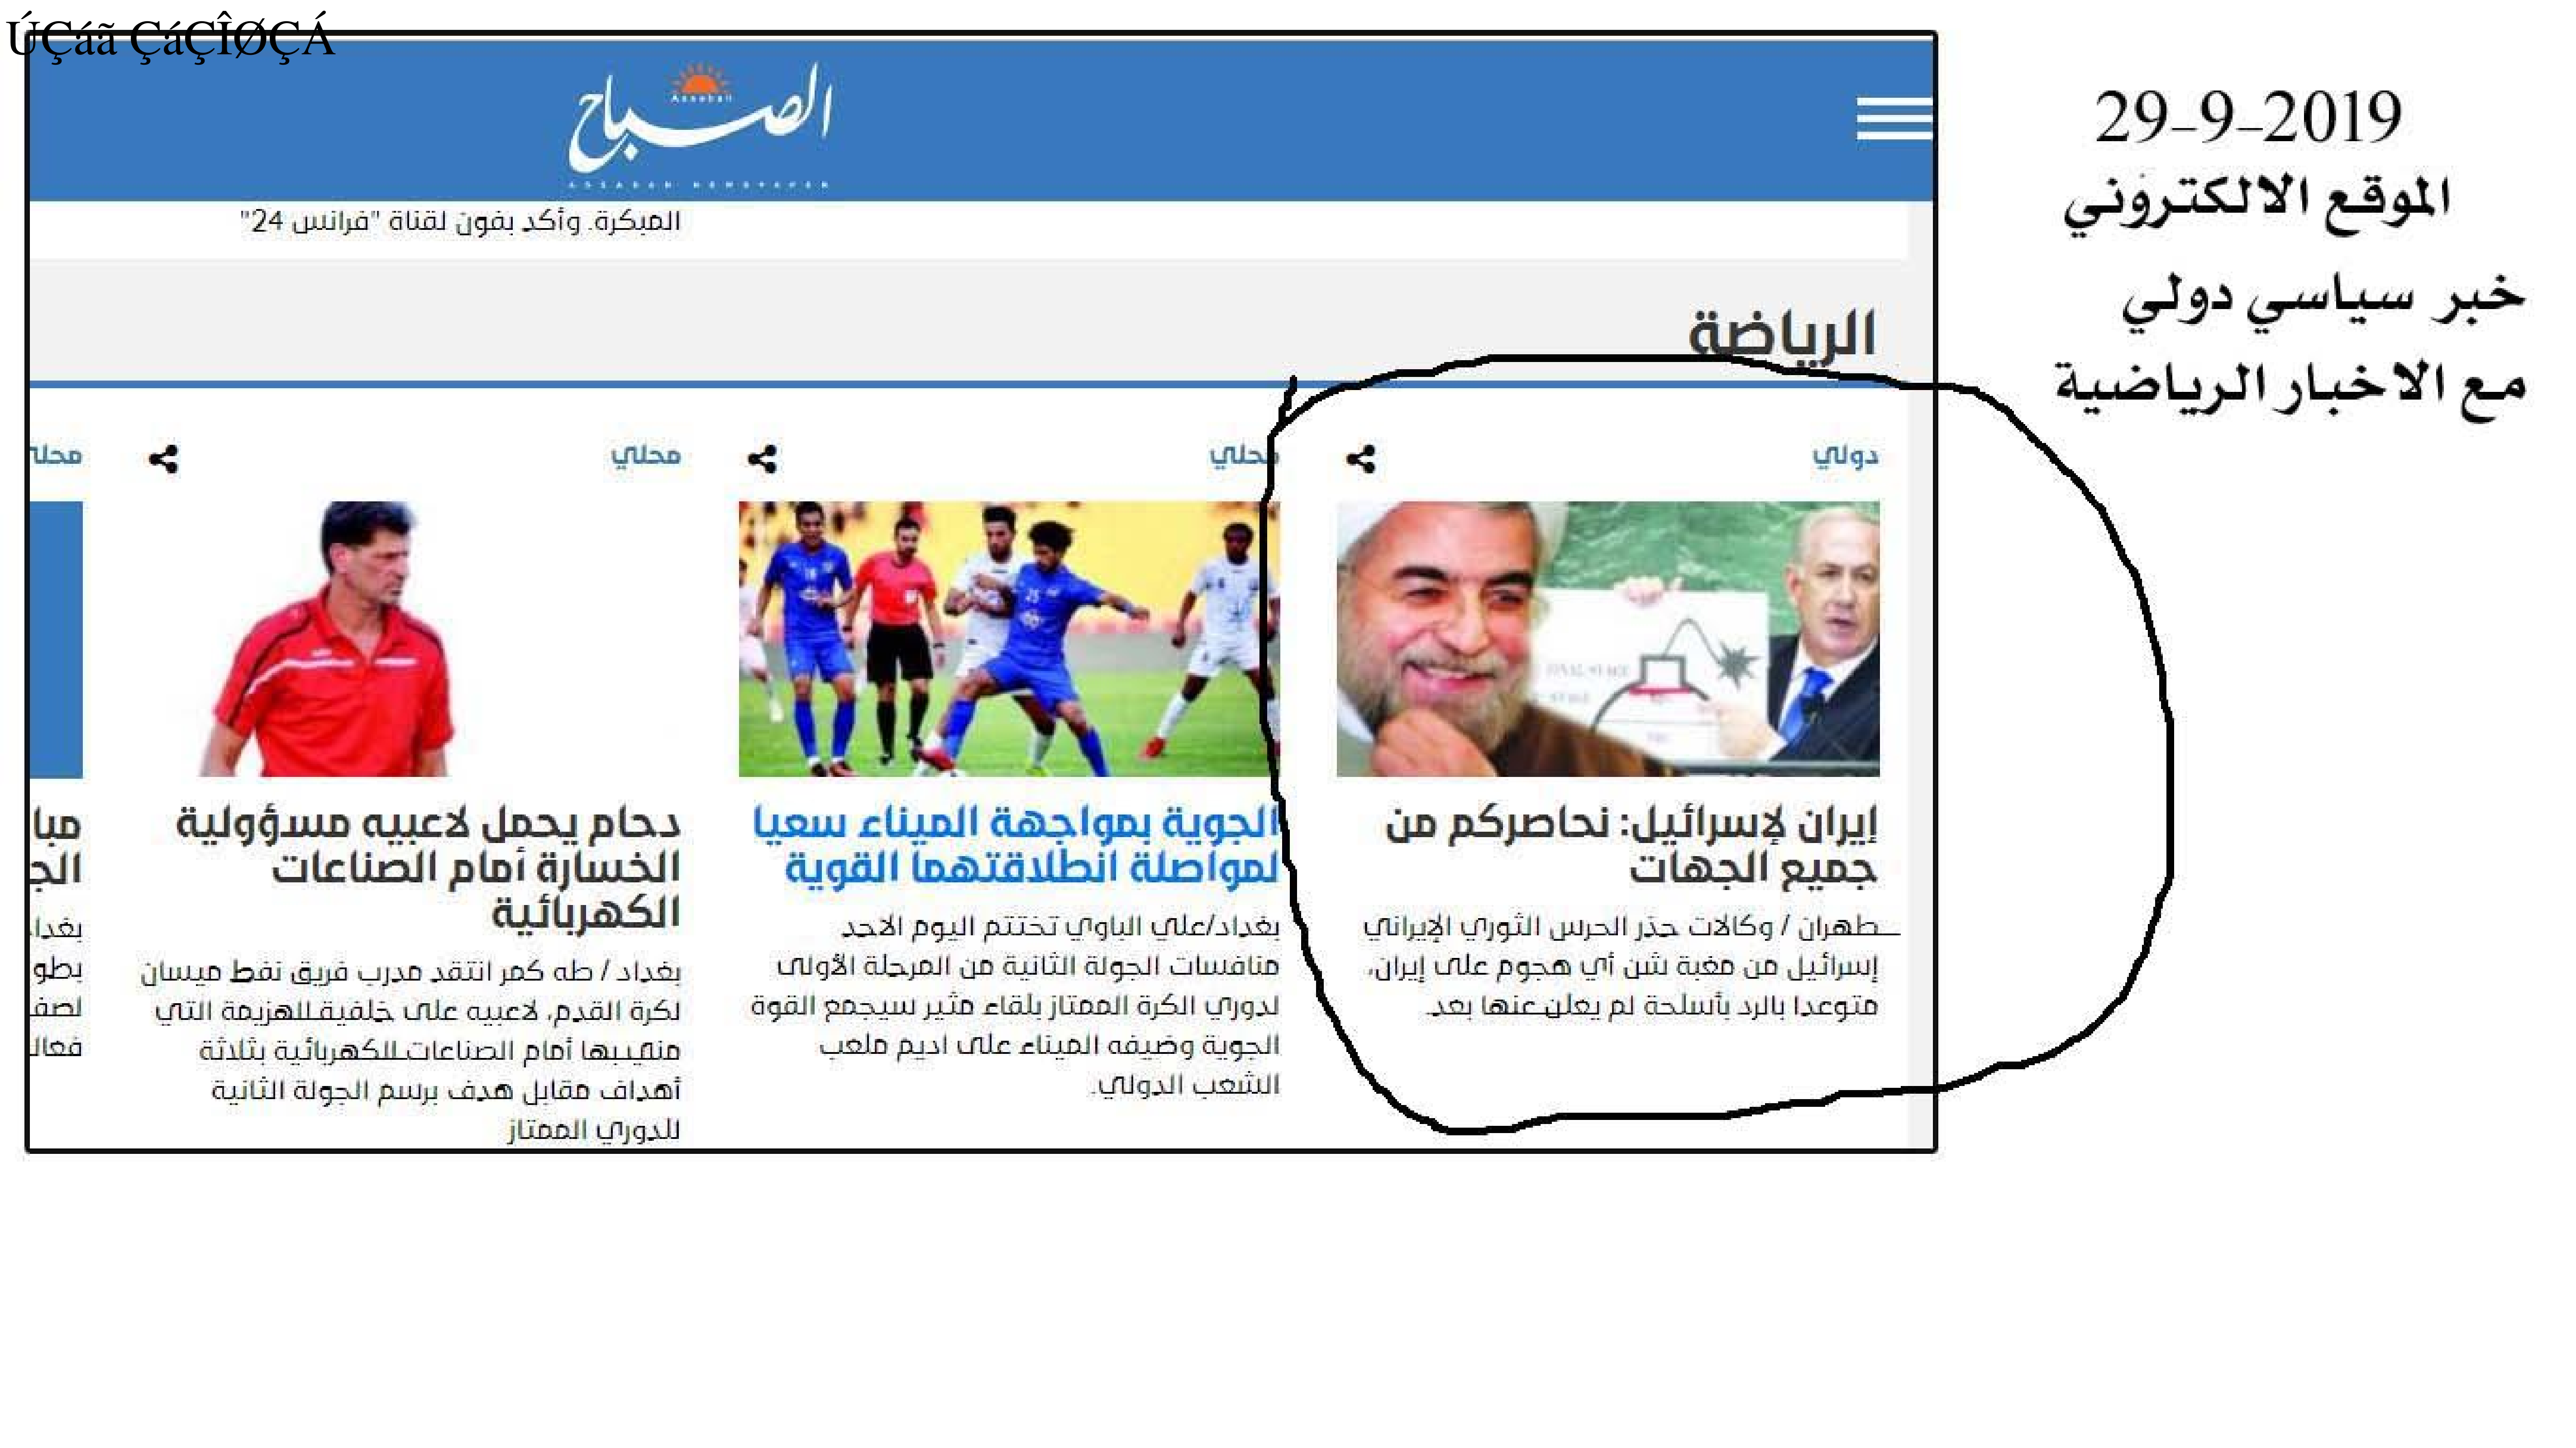 ÚÇáã ÇáÇÎØÇÁ
29-9-2019
الموقع الالكتروني
خبر سياسي دولي
مع الاخبار الرياضية
الصباح
Assabah
ASSABAH NEWSPAPER
المبكرة. وأكد بفون لقناة "فرانس 24"
الرياضة
دولي
إيران لإسرائيل: نحاصركم من
جميع الجهات
طهران / وكالات حذر الحرس الثوري الإيراني
إسرائيل من مغبة شن أي هجوم على إيران،
متوعدا بالرد بأسلحة لم يعلن عنها بعد.
محلي
الجوية بمواجهة الميناء سعيا
لمواصلة انطلاقتهما القوية
بغداد/علي الباوي تختتم اليوم الاحد
منافسات الجولة الثانية من المرحلة الأولى
لدوري الكرة الممتاز بلقاء مثير سيجمع القوة
الجوية وضيفه الميناء على اديم ملعب
الشعب الدولي.
محلي
دحام يحمل لاعبيه مسؤولية
الخسارة أمام الصناعات
الكهربائية
بغداد / طه كمر انتقد مدرب فريق نفط ميسان
لكرة القدم، لاعبيه على خلفية الهزيمة التي
مني بها أمام الصناعات الكهربائية بثلاثة
أهداف مقابل هدف برسم الجولة الثانية
للدوري الممتاز